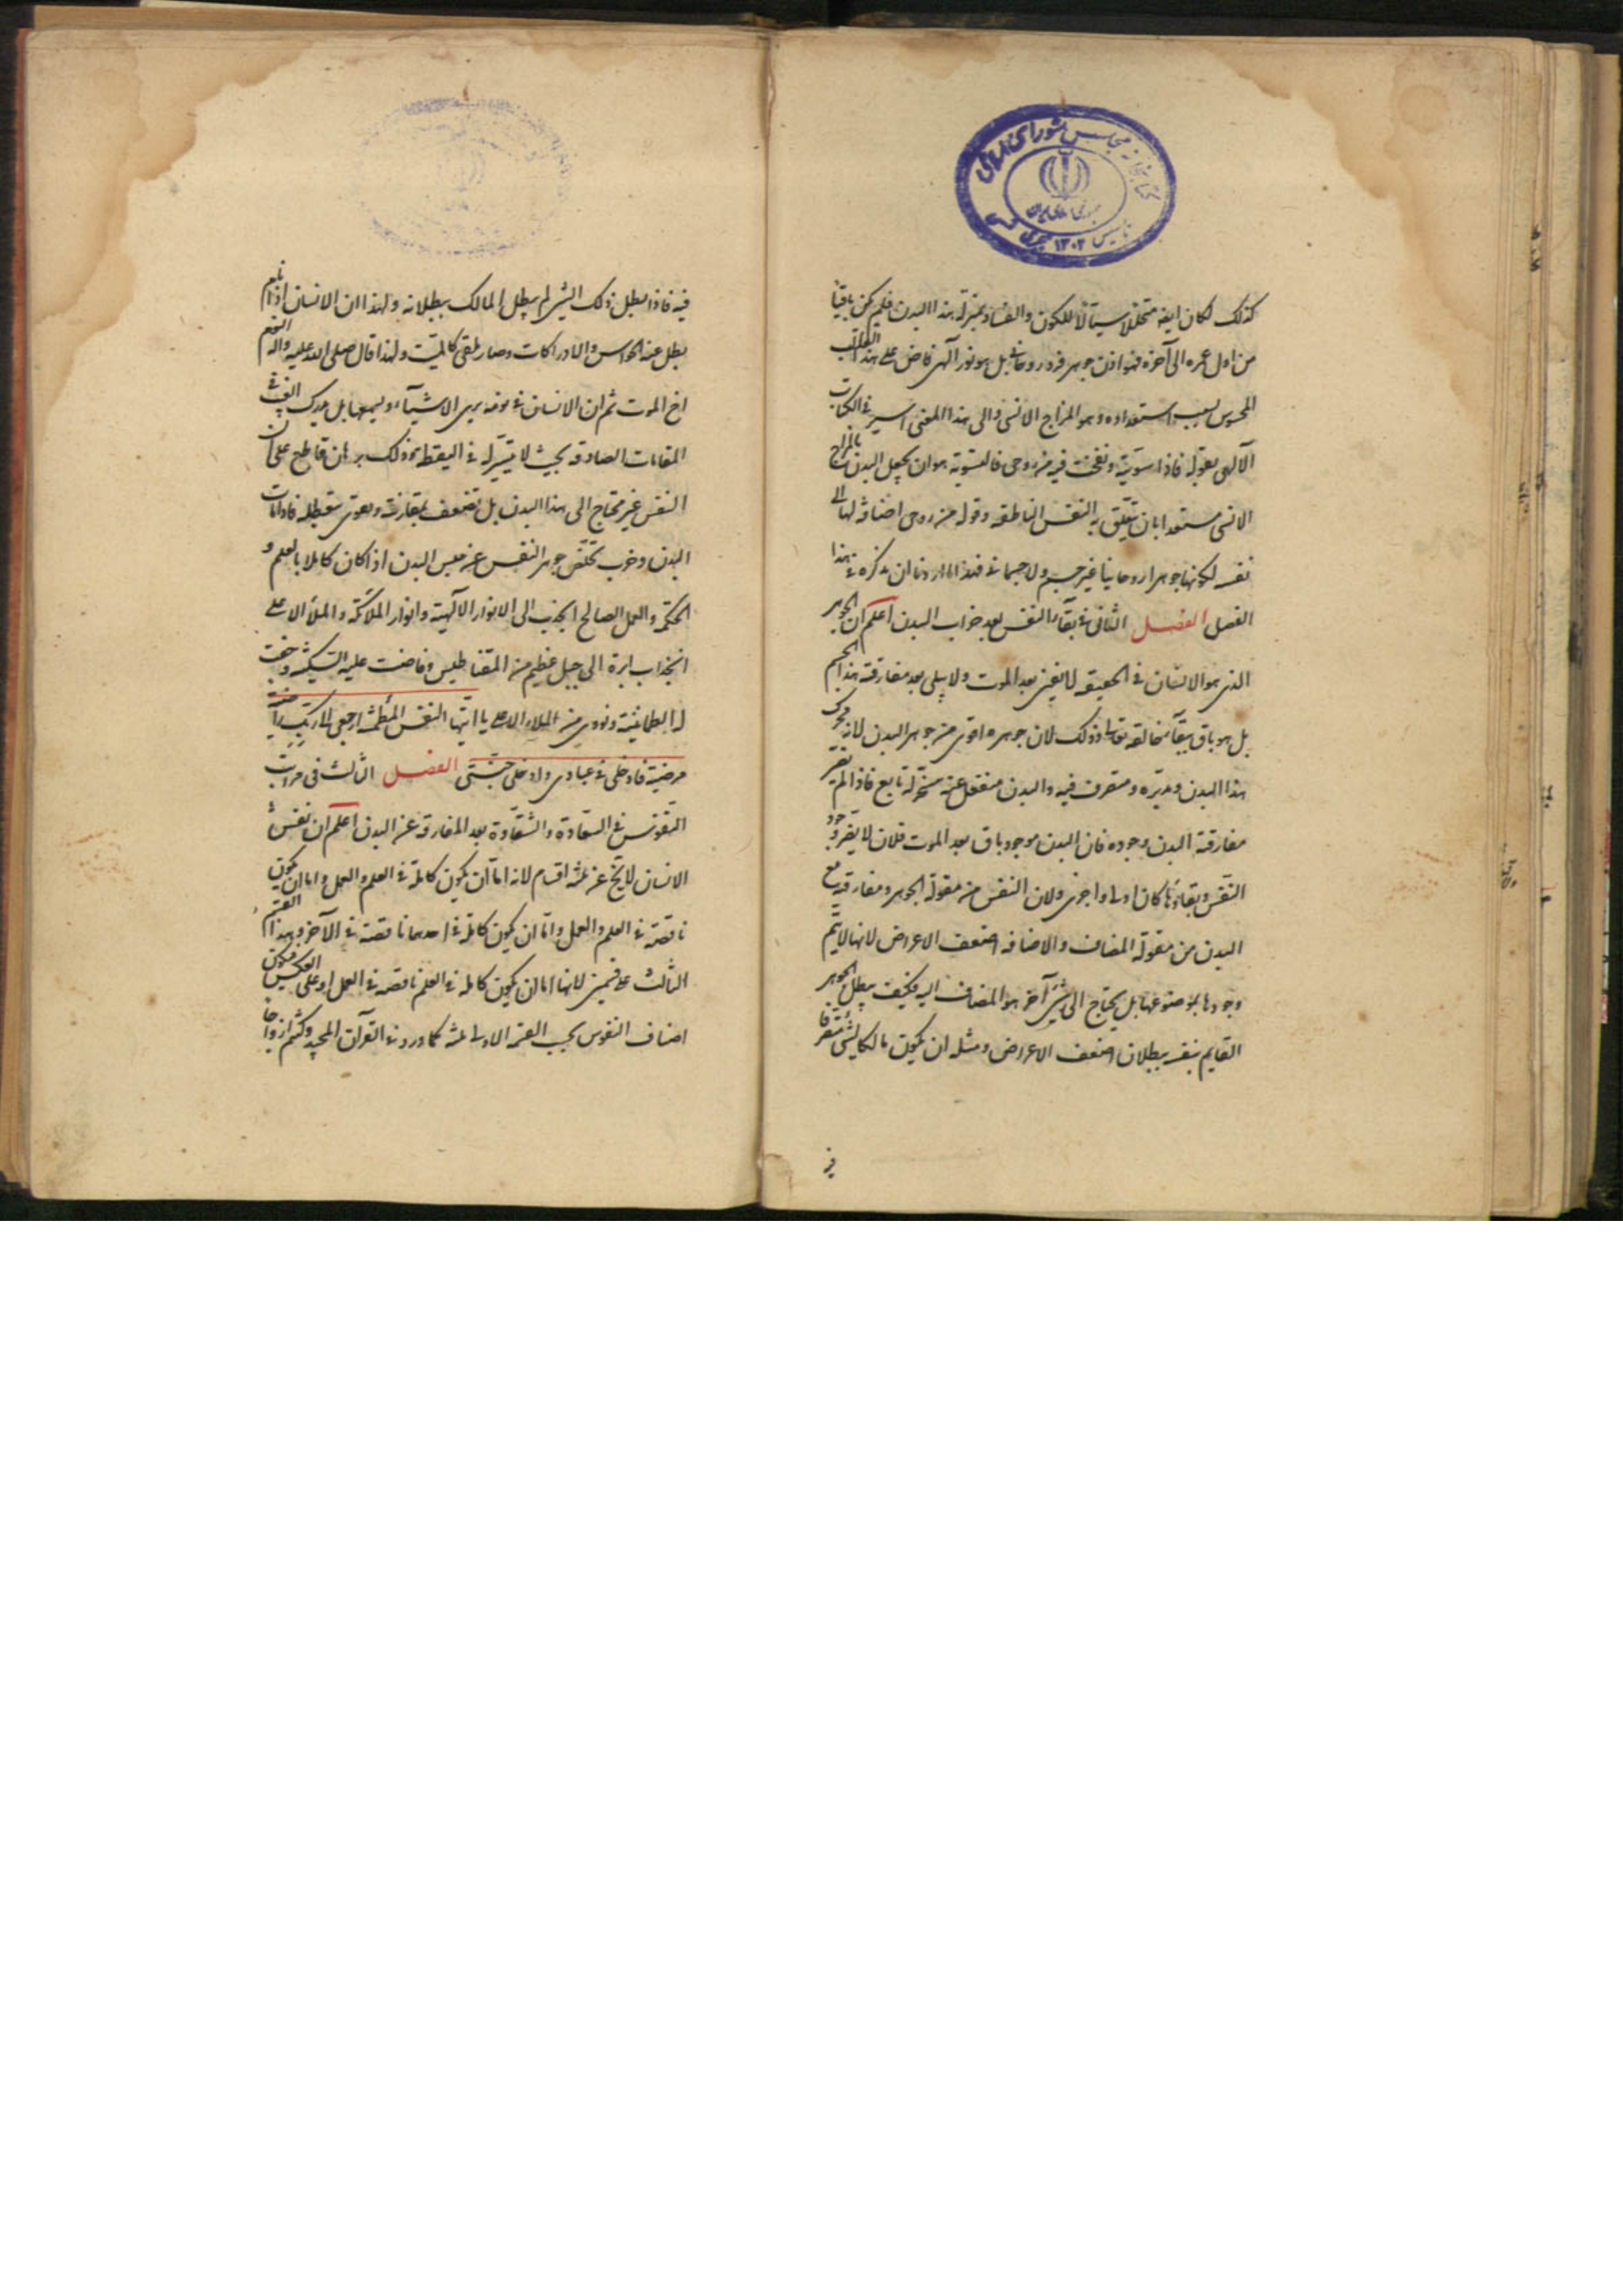 كتابخانه مجلس شورای اسلامی
جمهوری اسلامی ایران
تاسیس ۱۳۰۲ هجری شمسی
كذلك لكان ايضا متحللا سيالا للكون والفساد بمنزلة هذا البدن فلم يكن باقيا
من اول عمره الى آخره فهو اذن جوهر فرد روحانى بل هو نور آلهى فاض على هذا القالب
المحسوس بسبب استعداده وهو المزاج الانسى والى هذا المعنى اشير فى الكتاب
الآلهى بقوله فاذا سويته ونفخت فيه من روحى فالتسوية هو ان يجعل البدن بالمزاج
الانسى مستعدا بان يتعلق به النفس الناطقه وقوله من روحى اضافة لها الى
نفسه لكونها جوهرا روحانيا غير جسم ولا جسمانى فهذا ما اردنا ان نذكره فى هذا
الفصل الفصل الثانى فى بقاء النفس بعد خراب البدن اعلم ان الجوهر
الذى هو الانسان فى الحقيقه لا يفنى بعد الموت ولا يبلى بعد مفارقة هذا الجسم
بل هو باق ببقاء خالقه تعالى وذلك لان جوهره اقوى من جوهر البدن لانه محرك
هذا البدن ومدبره ومتصرف فيه والبدن منفعل عنه متحرك تابع فاذا لم يضر
مفارقة البدن وجوده فان البدن موجود باق بعد الموت فلان لا يضر وجود
النفس وبقاؤها كان اولى واحرى ولان النفس من مقولة الجوهر ومفارقته مع
البدن من مقولة المضاف والاضافه اضعف الاعراض لانها لا يتم
وجودها بموضوعها بل يحتاج الى شىء آخر هو المضاف اليه فكيف يبطل الجوهر
القايم بنفسه ببطلان اضعف الاعراض ومثله ان يكون مالكا لشىء متصرفا
فيه
فيه فاذا بطل ذلك الشىء لم يبطل المالك ببطلانه ولهذا ان الانسان اذا نام
بطل عنه الحواس والادراكات وصار ملقى كالميت ولهذا قال صلى الله عليه وآله النوم
اخ الموت ثم ان الانسان فى نومه يرى الاشياء ويسمعها بل يدرك الغيب فى
المقامات الصادقه بحيث لا يتيسر له فى اليقظه وذلك برهان قاطع على ان
النفس غير محتاج الى هذا البدن بل تضعف بمقارنته ويقوى بتعطله فاذا مات
البدن وخرب تخلص جوهر النفس عن حبس البدن اذا كان كاملا بالعلم و
الحكمة والعمل الصالح انجذب الى الانوار الآلهية وانوار الملائكة والملأ الاعلى
انجذاب ابرة الى جبل عظيم من المقناطيس وفاضت عليه السكينة وحقت
له الطمانينة ونودى من الملاء الاعلى يا ايتها النفس المطمئنه ارجعى الى ربك راضية
مرضية فادخلى فى عبادى وادخلى جنتى الفصل الثالث فى مراتب
النفوس فى السعادة والشقاوة بعد المفارقه عن البدن اعلم ان نفس
الانسان لا يخ عن ثلثه اقسام لانه اما ان يكون كاملة فى العلم والعمل واما ان يكون
ناقصة فى العلم والعمل واما ان يكون كاملة فى احدهما ناقصة فى الآخر وهذا القسم
الثالث على قسمين لانها اما ان يكون كاملة فى العلم ناقصه فى العمل او على العكس فيكون
اصناف النفوس بحسب القسمه الاولى ثلثه كما ورد فى القرآن المجيد وكنتم ازواجا